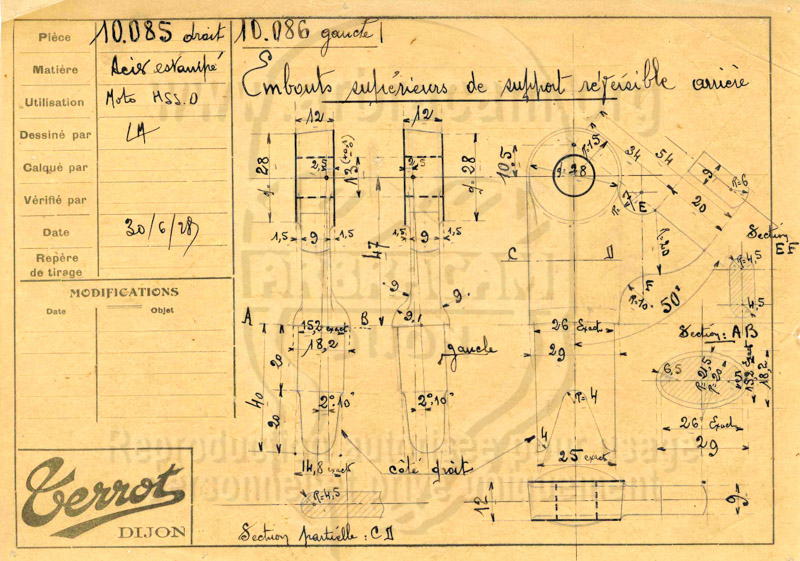 Pièce 10.085 droit 10.086 gauche
Matière Acier estampé
Utilisation Moto HSS.O
Dessiné par LM
Calqué par
Vérifié par
Date 30/6/28
Repère
de tirage
MODIFICATIONS
Date Objet
Terrot
DIJON
Embouts supérieurs de support réversible arrière
12
12
28
28
10.5
18
R=15
34
54
9
R=6
20
E
Section
EF
1,5 9 1,5
1,5 9 1,5
47
C
D
R=20
F
R=10
50°
R=4,5
4,5
9
9
9
A
B
15,2 exact
18,2
gauche
26 Exact
29
Section: AB
6,5
R=21,5
R=20
15,2 Exact
18,2
26 Exact
29
40
20
20
2°10'
2°10'
R=4
4
14,8 exact
côté droit
25 exact
R=4,5
12
9
Section partielle: CD
ANBRACAM
DIJON
Reproduction autorisée pour usage
personnel et privé uniquement